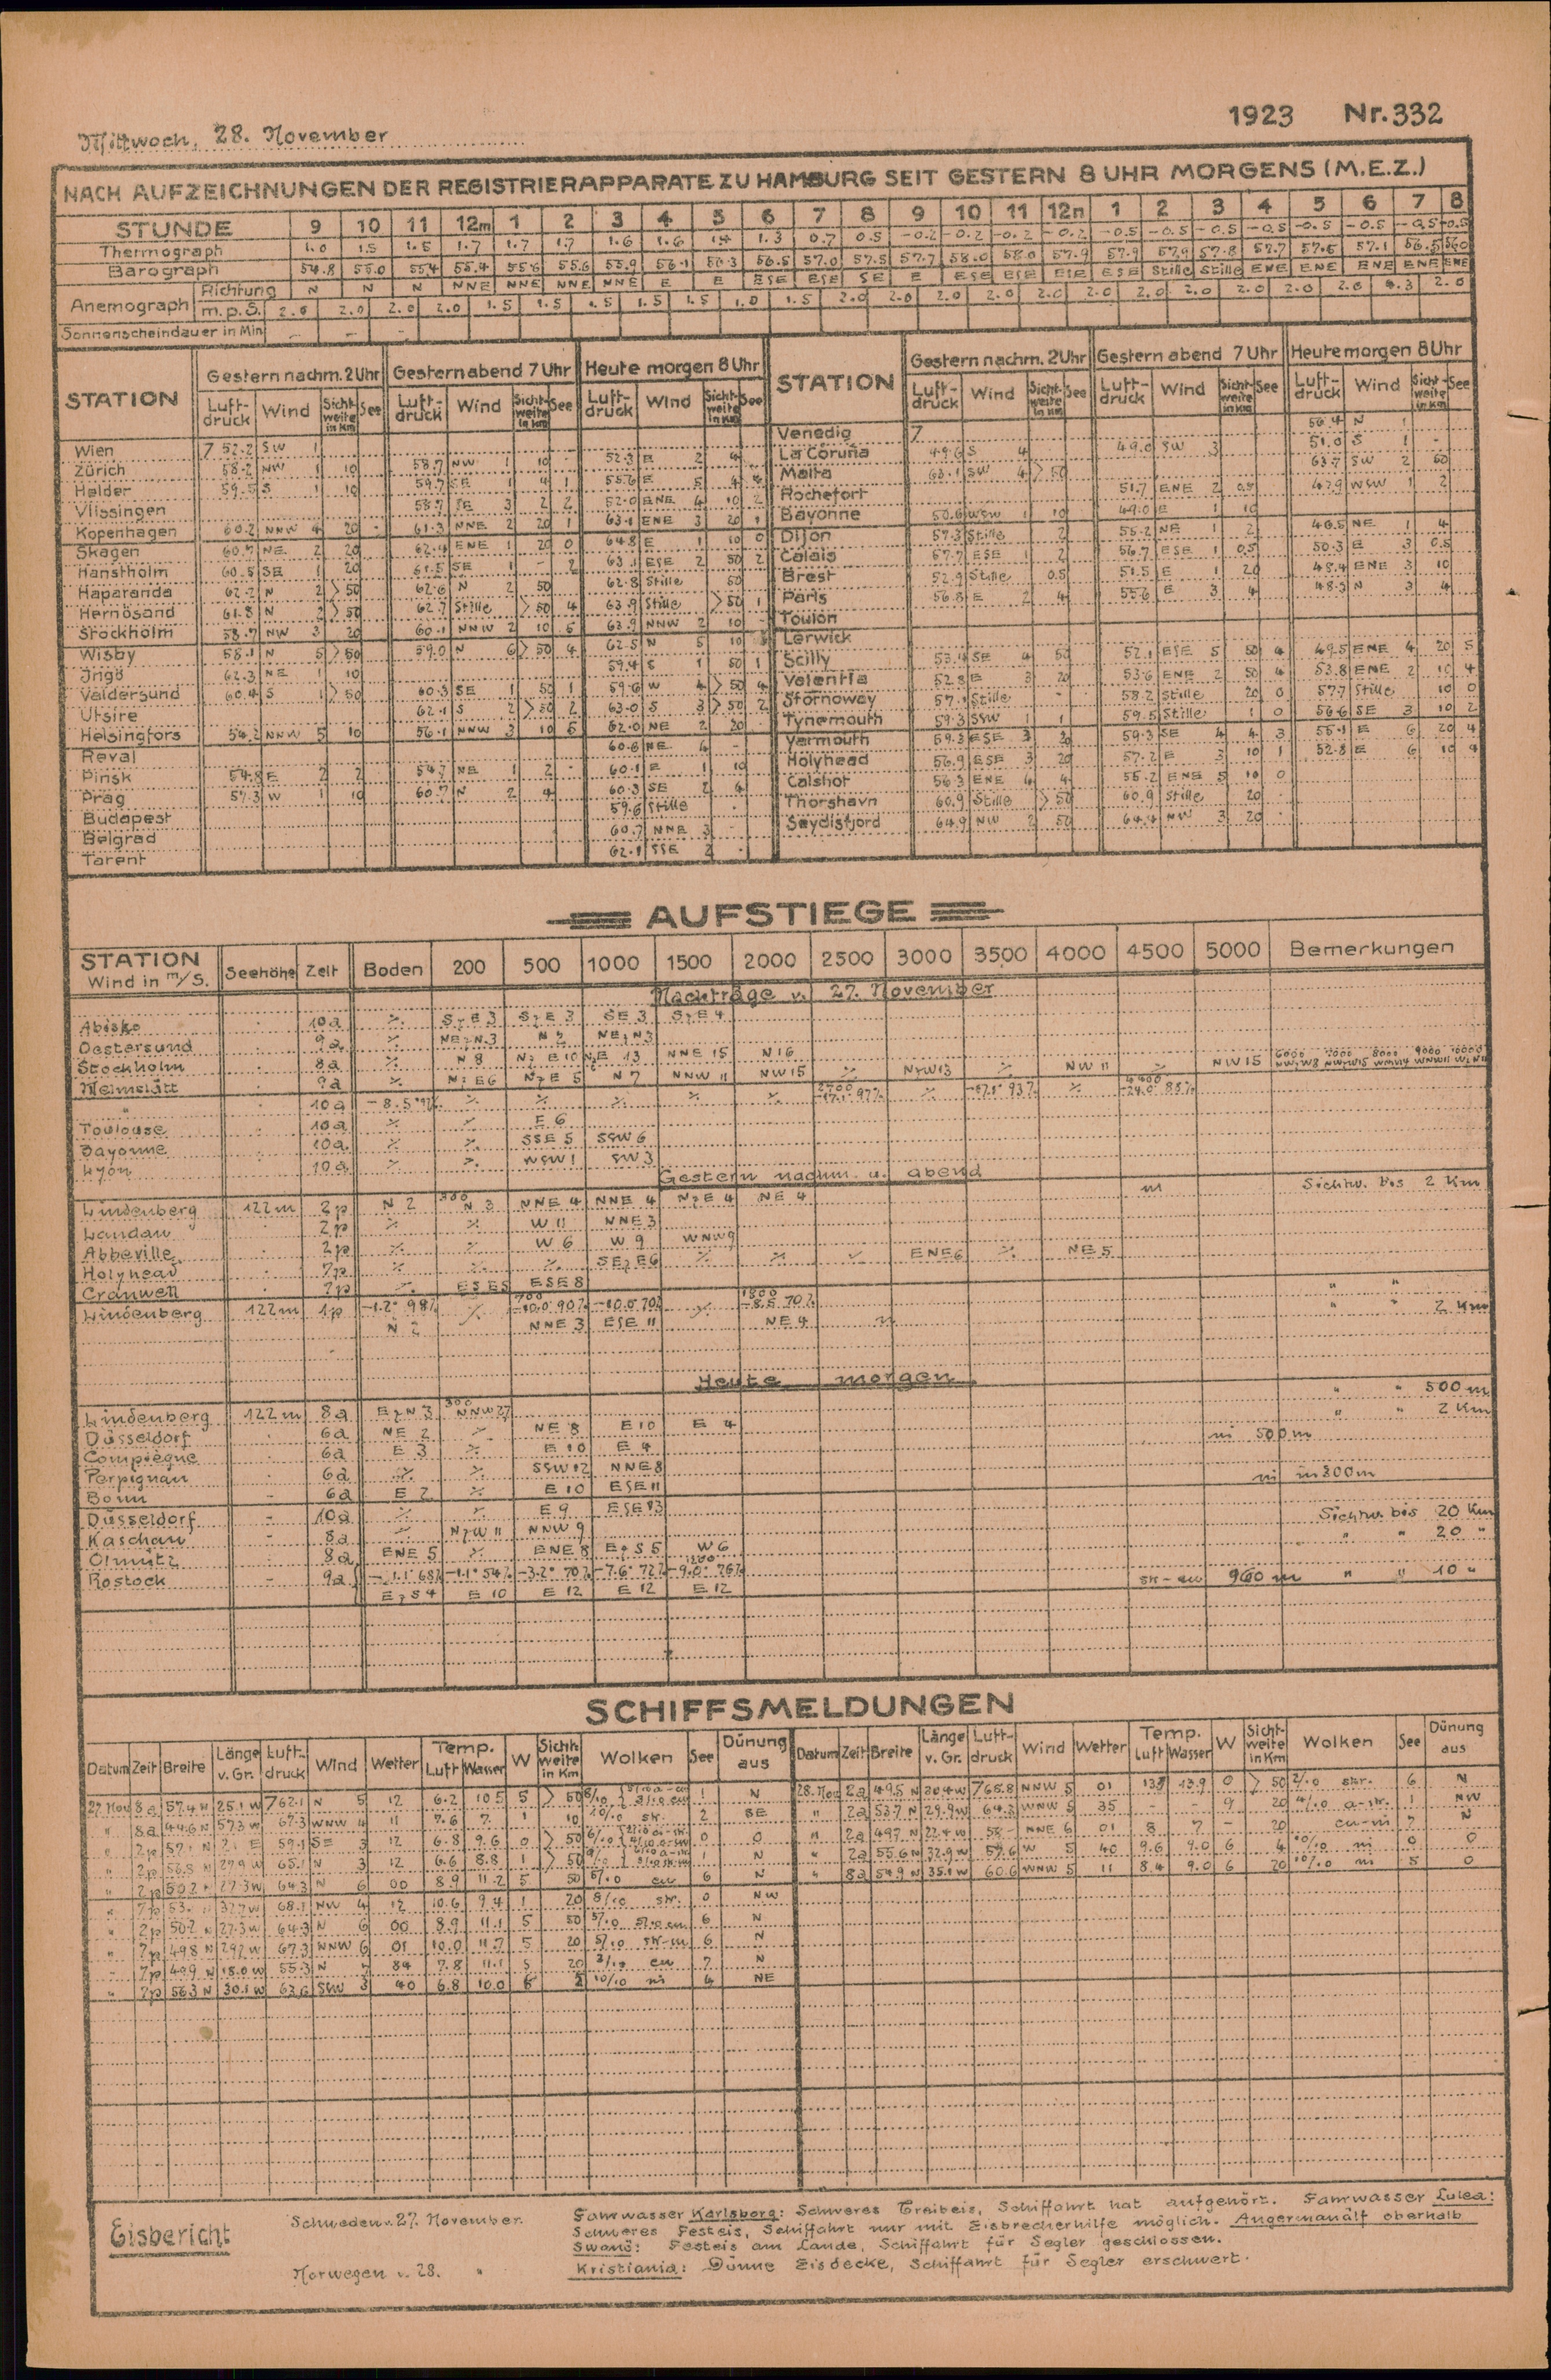 Mittwoch, 28. November
1923 Nr. 332
NACH AUFZEICHNUNGEN DER REGISTRIERAPPARATE ZU HAMBURG SEIT GESTERN 8 UHR MORGENS (M.E.Z.)
STUNDE 9 10 11 12m 1 2 3 4 5 6 7 8 9 10 11 12n 1 2 3 4 5 6 7 8
Thermograph 1.0 1.5 1.5 1.7 1.7 1.7 1.6 1.6 1.4 1.3 0.7 0.5 -0.2 -0.2 -0.2 -0.2 -0.5 -0.5 -0.5 -0.5 -0.5 -0.5 -0.5 -0.5
Barograph 54.8 55.0 55.4 55.4 55.6 55.6 55.9 56.1 56.3 56.5 57.0 57.5 57.7 58.0 58.0 57.9 57.9 57.9 57.8 57.7 57.5 57.1 56.5 56.0
Anemograph Richtung N N N NNE NNE NNE NNE E E ESE ESE SE E ESE ESE ESE ESE Stille Stille ENE ENE ENE ENE ENE
m.p.S. 2.0 2.0 2.0 2.0 1.5 1.5 1.5 1.5 1.5 1.0 1.5 2.0 2.0 2.0 2.0 2.0 2.0 2.0 2.0 2.0 2.0 2.0
Sonnenscheindauer in Min. — — —
STATION Gestern nachm. 2 Uhr Gestern abend 7 Uhr Heute morgen 8 Uhr STATION Gestern nachm. 2 Uhr Gestern abend 7 Uhr Heute morgen 8 Uhr
Luftdruck Wind Sichtweite in Km See Luftdruck Wind Sichtweite in Km See Luftdruck Wind Sichtweite in Km See Luftdruck Wind Sichtweite in Km See Luftdruck Wind Sichtweite in Km See Luftdruck Wind Sichtweite in Km See
Wien 7 52.2 SW 1 Venedig 7 56.4 N 1
Zürich 58.2 NW 1 10 58.7 NW 1 10 52.3 E 2 4 La Coruña 49.6 S 4 49.0 SW 3 51.0 S 1 -
Helder 59.5 S 1 10 59.7 SE 1 4 1 55.6 E 5 4 Malta 63.1 SW 4 >50 63.7 SW 2 60
Vlissingen 58.7 SE 3 2 2 52.0 ENE 4 10 2 Rochefort 51.7 ENE 2 0.5 47.9 WSW 1 2
Kopenhagen 60.2 NNW 4 20 61.3 NNE 2 20 1 63.1 ENE 3 20 1 Bayonne 50.6 WSW 1 10 49.0 E 1 10
Skagen 60.7 NE 2 20 62.4 ENE 1 20 0 64.8 E 1 10 0 Dijon 57.3 Stille 2 55.2 NE 1 2 46.5 NE 1 4
Hanstholm 60.5 SE 1 20 61.5 SE 1 - 2 63.1 ESE 2 50 2 Calais 57.7 ESE 1 2 56.7 ESE 1 0.5 50.3 E 3 0.5
Haparanda 62.2 N 2 >50 62.6 N 2 50 62.8 Stille 50 Brest 52.9 Stille 0.5 51.5 E 1 20 48.4 ENE 3 10
Hernösand 61.8 N 2 >50 62.7 Stille >50 4 63.9 Stille >50 1 Paris 56.8 E 2 4 55.6 E 3 4 48.3 N 3 4
Stockholm 58.7 NW 3 20 60.1 NNW 2 10 6 63.9 NNW 2 10 - Toulon
Wisby 58.1 N 5 >50 59.0 N 6 >50 4 62.5 N 5 10 Lerwick
Ingö 62.3 NE 1 10 59.4 S 1 50 1 Scilly 53.4 SE 4 50 52.1 ESE 5 50 4 49.5 ENE 4 20 5
Valdersund 60.4 S 1 >50 60.3 SE 1 50 1 59.6 W 4 >50 4 Valentia 52.8 E 3 20 53.6 ENE 2 50 4 53.8 ENE 2 10 4
Utsire 62.1 S 2 >50 2 63.0 S 3 >50 2 Stornoway 57.1 Stille - 58.2 Stille 20 0 57.7 Stille 10 0
Helsingfors 54.2 NNW 5 10 56.1 NNW 3 10 6 62.0 NE 2 20 Tynemouth 59.3 SSW 1 1 59.5 Stille 1 0 56.6 SE 3 10 2
Reval 60.6 NE 4 - Yarmouth 59.3 ESE 3 59.3 SE 4 4 3 55.1 E 6 20 4
Pinsk 54.8 E 2 2 54.7 NE 1 2 60.1 E 1 10 Holyhead 56.9 ESE 3 20 57.2 E 3 10 1 52.8 E 6 10 4
Prag 57.3 W 1 10 60.7 N 2 4 60.3 SE 2 4 Calshot 56.3 ENE 4 4 55.2 ENE 5 10 0
Budapest 59.6 Stille Thorshavn 60.9 Stille >50 60.9 Stille 20
Belgrad 60.7 NNE 3 - Seydisfjord 64.9 NW 2 50 64.4 NW 3 20
Tarent 62.1 SSE 2
AUFSTIEGE
STATION Wind in m/S. Seehöhe Zeit Boden 200 500 1000 1500 2000 2500 3000 3500 4000 4500 5000 Bemerkungen
Nachträge v. 27. November
Abisko 10a ·/. SzE 3 SzE 3 SE 3 SzE 4
Oestersund 9a ·/. NEzN 3 N 2 NEzN 3
Stockholm 8a ·/. N 8 NzE 10 NzE 13 NNE 15 N 16
Melmslätt 9a ·/. NzE 6 NzE 5 N 7 NNW 11 NW 15 ·/. NzW 13 ·/. NW 11 ·/. NW 15
" 10a -8.5° ·/. ·/. ·/. ·/. ·/. 2700 -17.1° 97% ·/. 93% ·/. 4400 -24.0° 85%
Toulouse 10a ·/. ·/. E 6
Bayonne 10a ·/. ·/. SSE 5 SSW 6
Lyon 10a ·/. ·/. WSW 1 SW 3
Gestern nachm. u. abend
Lindenberg 122m 2p N 2 300 N 3 NNE 4 NNE 4 NzE 4 NE 4 Sichtw. bis 2 Km
Landau 2p ·/. ·/. W 11 NNE 3
Abbeville 2p ·/. ·/. W 6 W 9 WNW 9
Holyhead 7p ·/. ·/. ·/. SEzE 6 ·/. ·/. ·/. ENE 6 ·/. NE 5
Cranwell 7p ·/. ESE 5 ESE 8 " "
Lindenberg 122m 1p -1.2° 98% ·/. 700 -10.0° 90% -10.0° 70% ·/. 1800 -8.5 70% " " 2 Km
N 2 NNE 3 ESE 11 NE 4
Heute morgen
Lindenberg 122m 8a EzN 3 300 NNW 27 " " 500 m
Düsseldorf 6a NE 2 ·/. NE 8 E 10 E 4 " " 2 Km
Compiègne 6a E 3 ·/. E 10 E 4 ni 500 m
Perpignan 6a ·/. ·/. SSW 12 NNE 8
Bonn 6a E 2 ·/. E 10 ESE 11 ni 800m
Düsseldorf 10a ·/. ·/. E 9 ESE 13
Kaschau 8a ·/. NzW 11 NNW 9 Sichtw. bis 20 Km
Olmütz 8a ENE 5 ·/. ENE 8 EzS 5 W 6 " " 20 "
Rostock 9a -1.1° 68% -1.1° 54% -3.2° 70% -7.6° 72% -9.0° 76%
EzS 4 E 10 E 12 E 12 E 12 str-cu 960 m " " 10 "
SCHIFFSMELDUNGEN
Datum Zeit Breite Länge v. Gr. Luftdruck Wind Wetter Temp. Luft Wasser W Sichtweite in Km Wolken See Dünung aus Datum Zeit Breite Länge v. Gr. Luftdruck Wind Wetter Temp. Luft Wasser W Sichtweite in Km Wolken See Dünung aus
27. Nov 8a 57.4 N 25.1 W 762.1 N 5 12 6.2 10.5 5 >50 1 N 28. Nov 2a 49.5 N 30.4 W 765.8 NNW 5 01 13.9 0 >50 2/10 skr. 6 N
" 8a 44.6 N 57.3 W 67.3 WNW 4 11 7.6 7. 1 10 10/10 str. 2 SE " 2a 53.7 N 29.9 W 64.3 WNW 5 35 - - 9 20 4/10 a-str. 1 NW
" 2p 57.1 N 2.1 E 59.1 SE 3 12 6.8 9.6 0 >50 0 0 " 2a 49.7 N 22.4 W 58.- NNE 6 01 8 7 - 20 cu-ni 7 N
" 2p 56.8 N 27.9 W 65.1 N 3 12 6.6 8.8 1 >50 1 N " 2a 55.6 N 32.9 W 57.6 W 5 40 9.6 9.0 6 4 10/10 ni 0 0
" 2p 50.2 N 27.3 W 64.3 N 6 00 8.9 11.2 5 50 5/10 cu 6 N " 8a 54.9 N 35.1 W 60.6 WNW 5 11 8.4 9.0 6 20 10/10 ni 5 0
" 7p NW 4 12 10.6 9.4 1 20 8/10 str. 0 NW
" 2p 50.2 N 27.3 W 64.3 N 6 00 8.9 11.1 5 50 cu 6 N
" 7p 49.8 N 29.2 W 67.3 NNW 6 01 10.0 11.7 5 20 5/10 str-cu 6 N
" 7p 49.9 N 18.0 W 55.3 N 7 84 7.8 11.1 5 20 3/10 cu 7 N
" 7p 56.3 N 30.1 W 63.6 SSW 3 40 6.8 10.0 2 10/10 ni 4 NE
Eisbericht Schweden v. 27. November. Fahrwasser Karlsborg: Schweres Treibeis, Schiffahrt hat aufgehört. Fahrwasser Lulea:
Schweres Festeis, Schiffahrt nur mit Eisbrecherhilfe möglich. Angermanälf oberhalb
Swanö: Festeis am Lande, Schiffahrt für Segler geschlossen.
Norwegen v. 28. " Kristiania: Dünne Eisdecke, Schiffahrt für Segler erschwert.